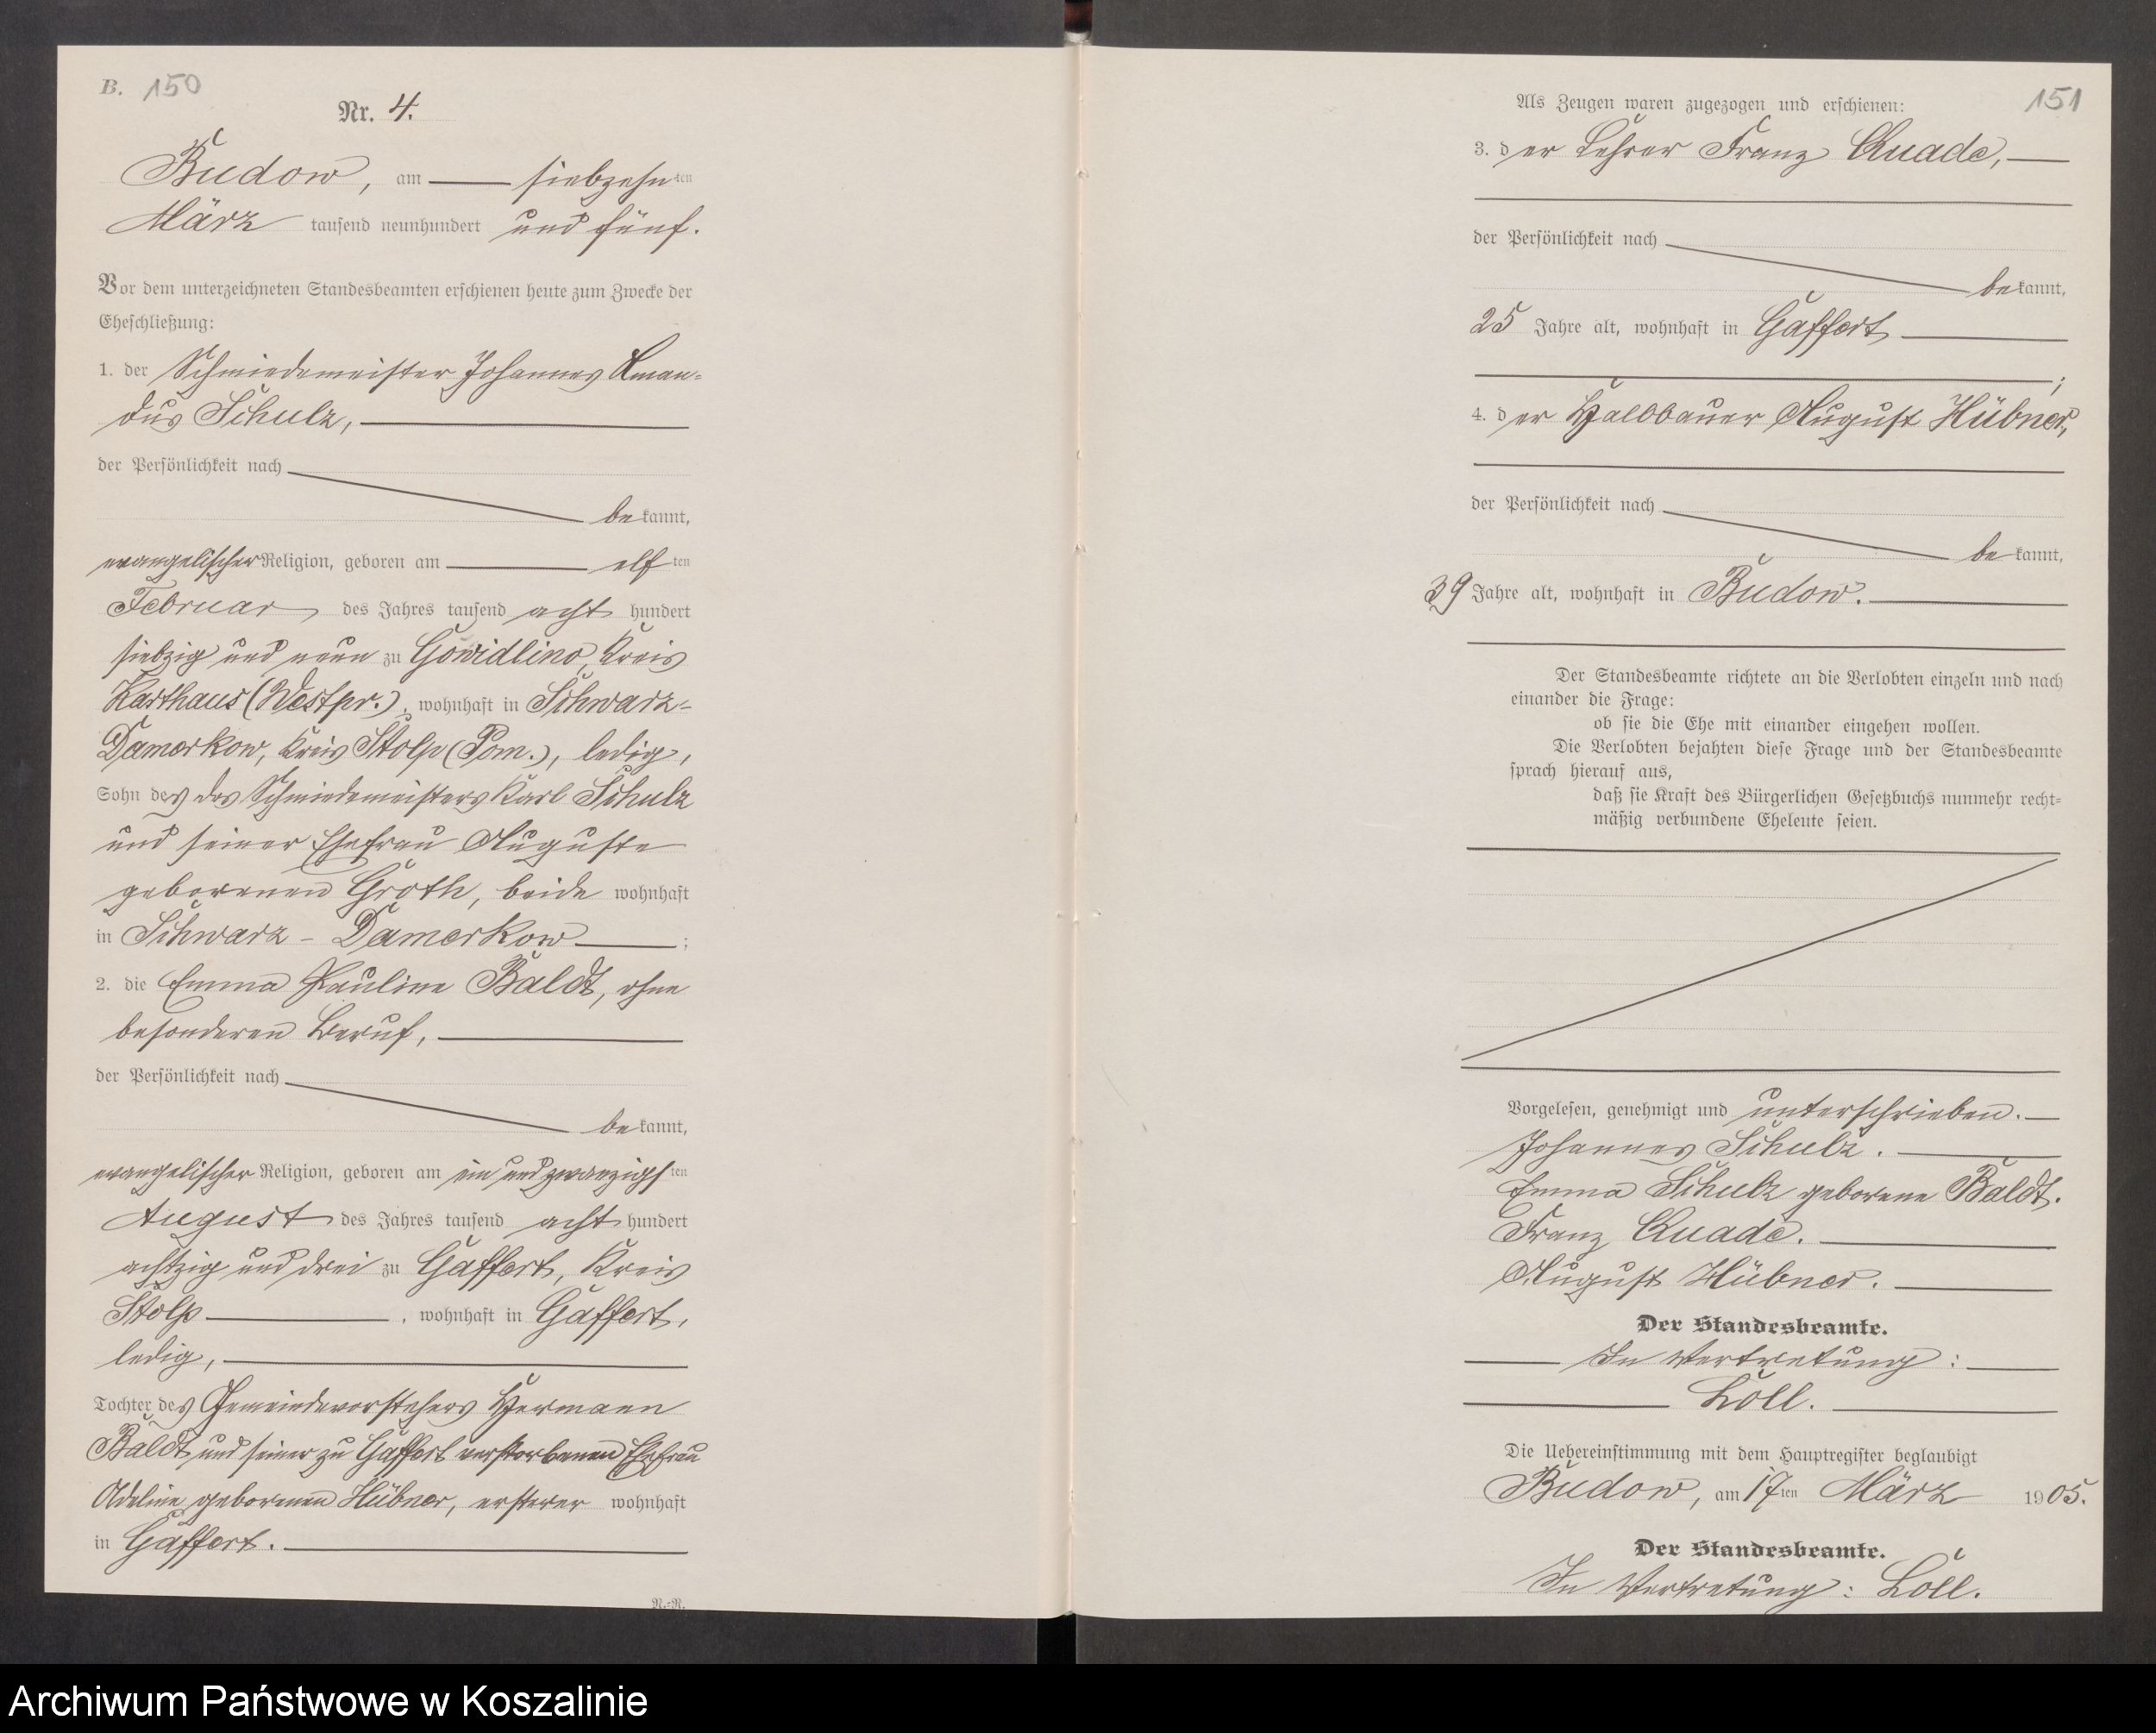 B. 150
Nr. 4.
Budow, am siebzehnten
März tausend neunhundert und fünf.
Vor dem unterzeichneten Standesbeamten erschienen heute zum Zwecke der
Eheschließung:
1. der Schmiedemeister Johannes Aman-
dus Schulz,
der Persönlichkeit nach
bekannt,
evangelischer Religion, geboren am elften
Februar des Jahres tausend acht hundert
siebzig und neun zu Gowidlino, Kreis
Karthaus (Westpr.), wohnhaft in Schwarz-
Damerkow, Kreis Stolp (Pom.), ledig,
Sohn des des Schmiedemeisters Karl Schulz
und seiner Ehefrau Auguste
geborenen Groth, beide wohnhaft
in Schwarz-Damerkow;
2. die Emma Pauline Baldt, ohne
besonderen Beruf,
der Persönlichkeit nach
bekannt,
evangelischer Religion, geboren am ein und zwanzigsten
August des Jahres tausend acht hundert
achtzig und drei zu Gaffert, Kreis
Stolp, wohnhaft in Gaffert,
ledig,
Tochter des Gemeindevorstehers Hermann
Baldt und seiner zu Gaffert verstorbenen Ehefrau
Adeline geborenen Hübner, ersterer wohnhaft
in Gaffert.
N.-R.
151
Als Zeugen waren zugezogen und erschienen:
3. der Lehrer Franz Quade,
der Persönlichkeit nach
bekannt,
25 Jahre alt, wohnhaft in Gaffert
;
4. der Halbbauer August Hübner,
der Persönlichkeit nach
bekannt,
39 Jahre alt, wohnhaft in Budow.
Der Standesbeamte richtete an die Verlobten einzeln und nach
einander die Frage:
ob sie die Ehe mit einander eingehen wollen.
Die Verlobten bejahten diese Frage und der Standesbeamte
sprach hierauf aus,
daß sie Kraft des Bürgerlichen Gesetzbuchs nunmehr recht-
mäßig verbundene Eheleute seien.
Vorgelesen, genehmigt und unterschrieben.
Johannes Schulz.
Emma Schulz geborene Baldt.
Franz Quade.
August Hübner.
Der Standesbeamte.
In Vertretung:
Löll.
Die Uebereinstimmung mit dem Hauptregister beglaubigt
Budow, am 17ten März 1905.
Der Standesbeamte.
In Vertretung: Löll.
Archiwum Państwowe w Koszalinie